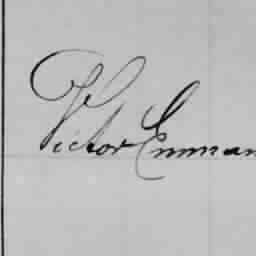 Victor Emman